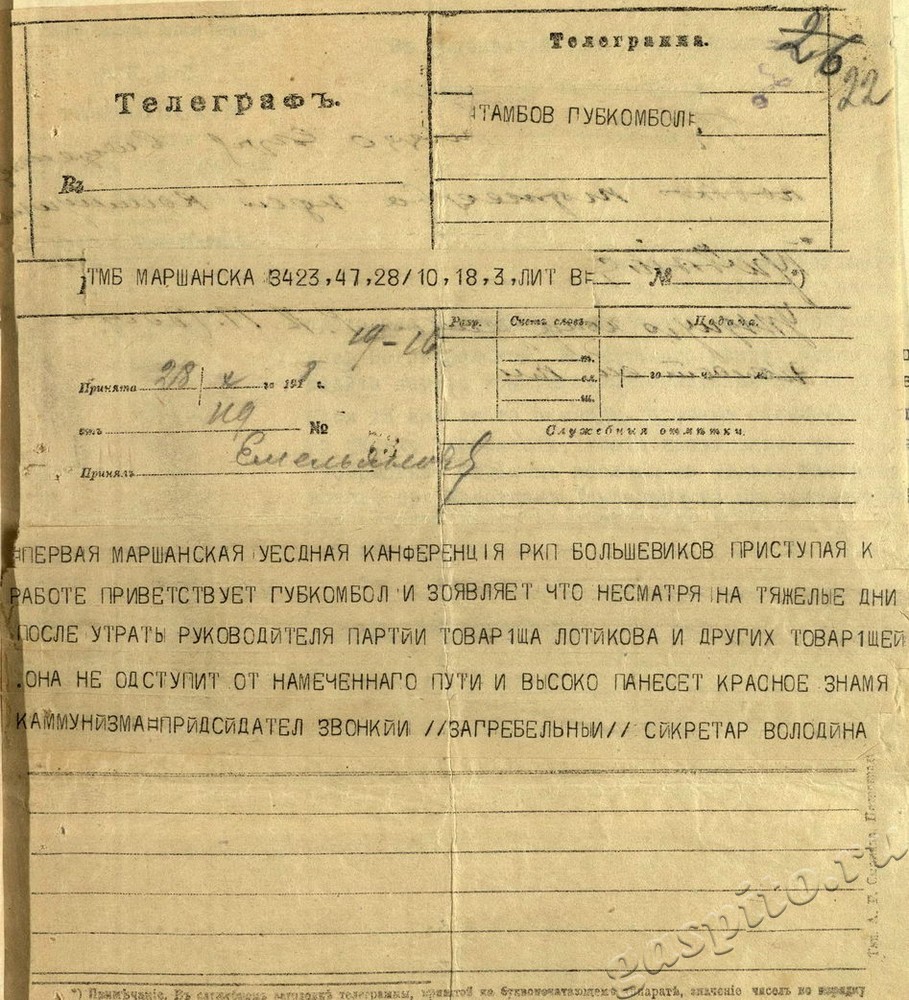 Телеграмма.
26
22
Телеграфъ.
ТАМБОВ ГУБКОМБОЛ
Въ
ТМБ МАРШАНСКА 3423,47,28/10,18,3,ЛИТ В= №
19-16
Разр. Счетъ словъ. Подана.
Принята 28/X го 1918 г.
отъ №
Служебныя отмѣтки.
Принялъ
=ПЕРВАЯ МАРШАНСКАЯ УЕСДНАЯ КАНФЕРЕНЦІЯ РКП БОЛЬШЕВИКОВ ПРИСТУПАЯ К
РАБОТЕ ПРИВЕТСТВУЕТ ГУБКОМБОЛ И ЗОЯВЛЯЕТ ЧТО НЕСМАТРЯ НА ТЯЖЕЛЫЕ ДНИ
ПОСЛЕ УТРАТЫ РУКОВОДЙТЕЛЯ ПАРТЙИ ТОВАР1ЩА ЛОТЙКОВА И ДРУГИХ ТОВАР1ЩЕЙ
.ОНА НЕ ОДСТУПИТ ОТ НАМЕЧЕННАГО ПУТИ И ВЫСОКО ПАНЕСЕТ КРАСНОЕ ЗНАМЯ
КАММУНЙЗМА=ПРЙДСЙДАТЕЛ ЗВОНКЙИ //ЗАГРЕБЕЛЬНЫИ// СЙКРЕТАР ВОЛОДЙНА
*) Примѣчаніе. Въ служебномъ заголовкѣ телеграммы, принятой на буквопечатающемъ аппаратѣ, значеніе чиселъ по порядку
gaspito.ru